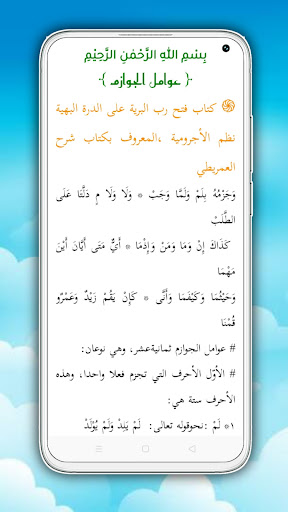 بِسْمِ اللَّهِ الرَّحْمَٰنِ الرَّحِيْمِ
·{ عوامل الجوازم }·
֎ كتاب فتح رب البرية على الدرة البهية
نظم الأجرومية ،المعروف بكتاب شرح
العمريطي
وَجَزْمُهُ بِلَمْ وَلَمَّا وَجَبْ * وَلَا وَلَا مٍ دَلَّتَا عَلَى
الطَّلَبْ
كَذَاكَ إِنْ وَمَا وَمَنْ وَإِذْمَا * أَيٌّ مَتَى أَيَّانَ أَيْنَ
مَهْمَا
وَحَيْثُمَا وَكَيْفَمَا وَأَنَّى * كَإِنْ يَقُمْ زَيْدٌ وَعَمْرٌو
قُمْنَا
# عوامل الجوازم ثمانيةعشر، وهي نوعان:
# الأوّل الأحرف التي تجزم فعلا واحدا، وهذه
الأحرف ستة هي:
١* لَمْ :نحوقوله تعالى: لَمْ يَلِدْ وَلَمْ يُوْلَدْ